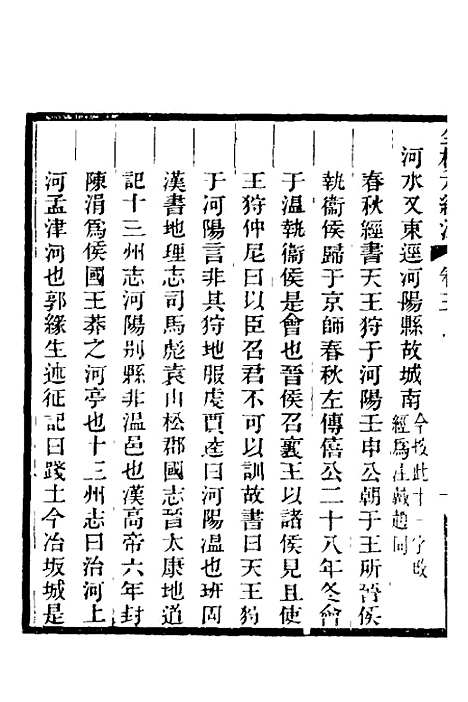 河水又東逕河陽縣故城南今按此十一字改
經爲注戴趙同
春秋經書天王狩于河陽壬申公朝于王所晉侯
執衞侯歸于京師春秋左傳僖公二十八年冬會
于溫執衞侯是會也晉侯召襄王以諸侯見且使
王狩仲尼曰以臣召君不可以訓故書曰天王狩
于河陽言非其狩地服虔賈逵曰河陽溫也班固
漢書地理志司馬彪袁山松郡國志晉太康地道
記十三州志河陽別縣非溫邑也漢高帝六年封
陳涓爲侯國王莽之河亭也十三州志曰治河上
河孟津河也郭緣生述征記曰踐土今冶坂城是